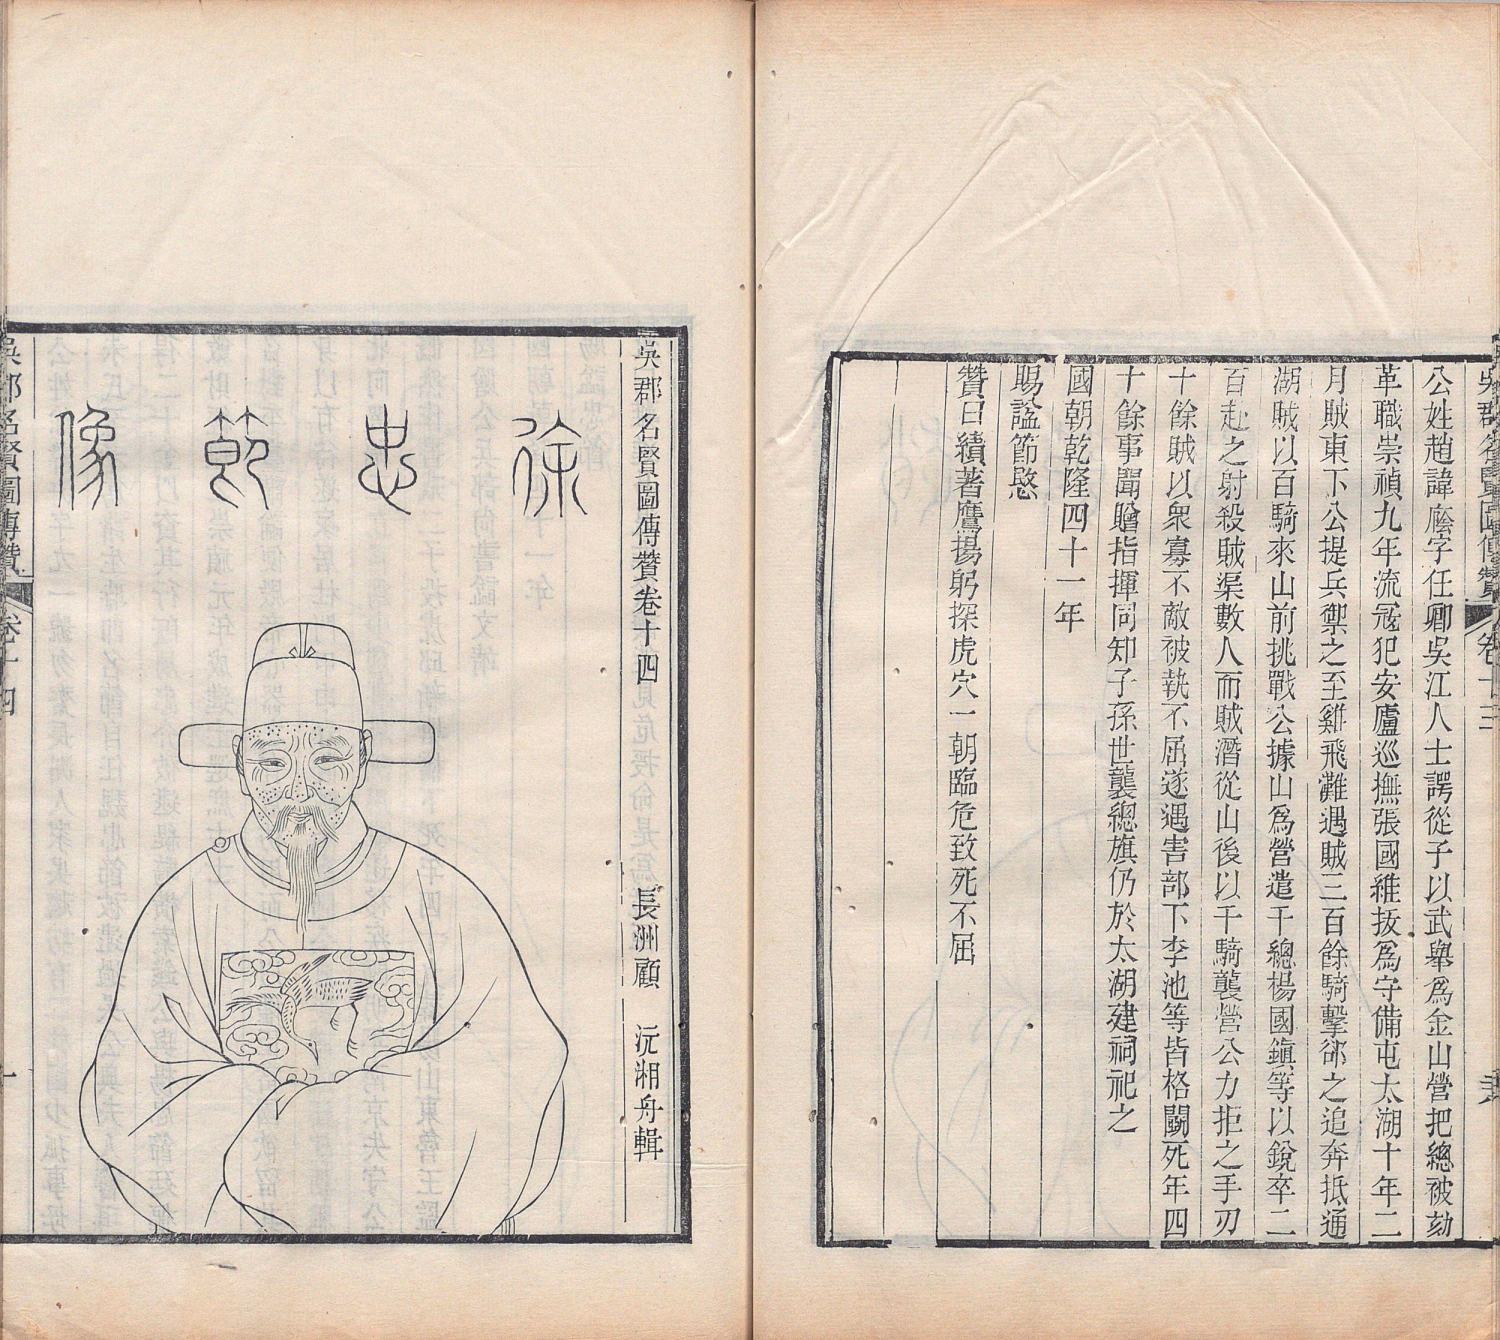 公姓趙諱𢊍字任卿吳江人士諤從子以武舉爲金山營把總被劾
革職崇禎九年流寇犯安廬巡撫張國維拔爲守備屯太湖十年二
月賊東下公提兵禦之至雞飛灘遇賊三百餘騎擊郤之追奔抵通
湖賊以百騎來山前挑戰公據山爲營遣千總楊國鎮等以銳卒二
百赴之射殺賊渠數人而賊潛從山後以千騎襲營公力拒之手刃
十餘賊以衆寡不敵被執不屈遂遇害部下李池等皆格鬬死年四
十餘事聞贈指揮同知子孫世襲總旗仍於太湖建祠祀之
國朝乾隆四十一年
賜諡節愍
贊曰績著鷹揚躬探虎穴一朝臨危致死不屈
吳郡名賢圖傳贊卷十四
長洲顧 沅湘舟輯
徐忠節像
吳郡名賢圖傳贊 卷十四 一